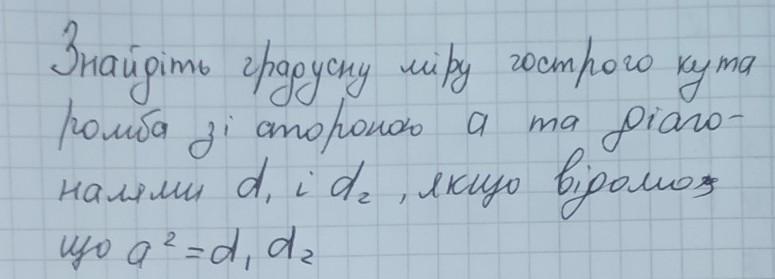 Знайдіть градусну міру гострого кута
ромба зі стороною a та діаго-
налями d₁ і d₂, якщо відомо,
що a² = d₁ d₂